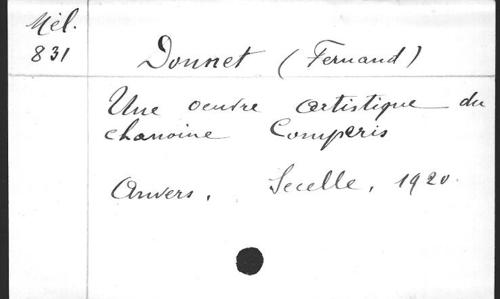 Mél.
831
Donnet (Fernand)
Une oeuvre artistique du
chanoine Comperis
Anvers, Secelle, 1920.